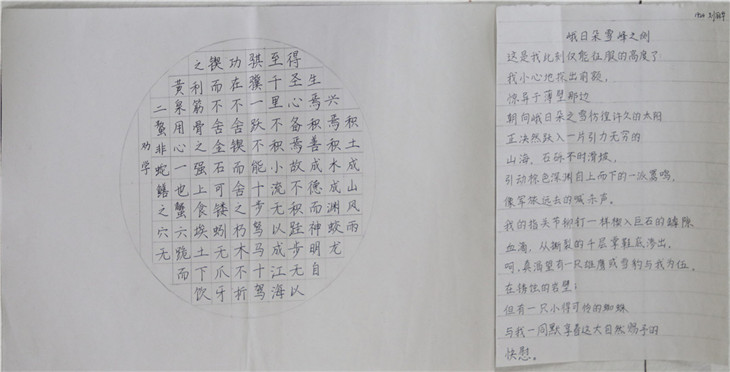 劝学
积土成山风雨
兴焉积水成渊蛟龙
生焉积善成德而神明自
得圣心备焉故不积跬步无以
至千里不积小流无以成江海
骐骥一跃不能十步驽马十驾
功在不舍锲而舍之朽木不折
锲而不舍金石可镂蚓无爪牙
之利筋骨之强上食埃土下饮
黄泉用心一也蟹六跪而
二螯非蛇鳝之穴无
峨日朵雪峰之侧
这是我此刻仅能征服的高度了
我小心地探出前额，
惊异于薄壁那边
朝向峨日朵之雪彷徨许久的太阳
正决然跃入一片引力无穷的
山海。石砾不时滑坡，
引动棕色深渊自上而下的一派嚣鸣，
像军旅远去的喊杀声。
我的指关节铆钉一样楔入巨石的罅隙
血滴，从撕裂的千层掌鞋底渗出。
呵，真渴望有一只雄鹰或雪豹与我为伍。
在锈蚀的岩壁；
但有一只小得可怜的蜘蛛
与我一同默享着这大自然赐予的
快慰。